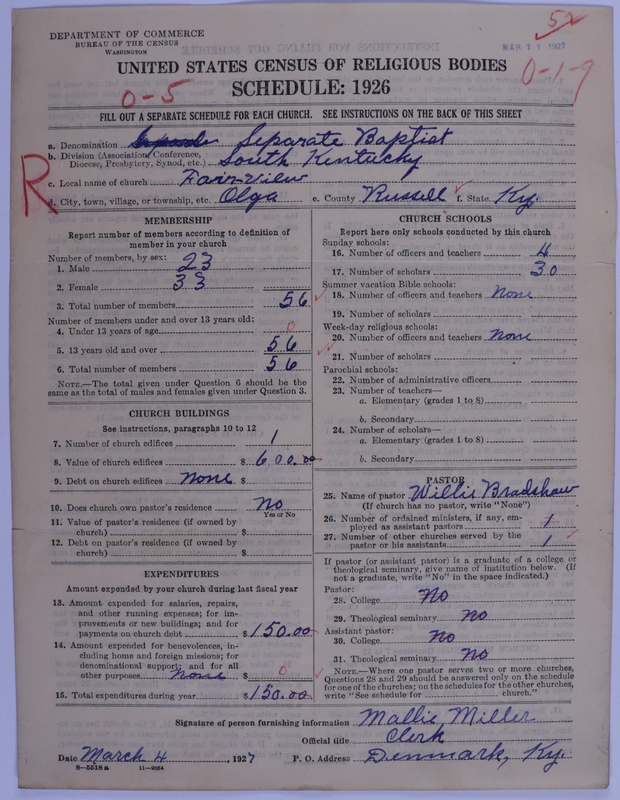 DEPARTMENT OF COMMERCE
BUREAU OF THE CENSUS
WASHINGTON
MAR 11 1927
52
0-1-9
UNITED STATES CENSUS OF RELIGIOUS BODIES
SCHEDULE: 1926
0-5
FILL OUT A SEPARATE SCHEDULE FOR EACH CHURCH. SEE INSTRUCTIONS ON THE BACK OF THIS SHEET
R
a. Denomination Separate Baptist
b. Division (Association, Conference, Diocese, Presbytery, Synod, etc.) South Kentucky
c. Local name of church Fairview
d. City, town, village, or township, etc. Olga e. County Russell f. State Ky.
MEMBERSHIP
Report number of members according to definition of
member in your church
Number of members, by sex:
1. Male 23
2. Female 33
3. Total number of members 56
Number of members under and over 13 years old:
4. Under 13 years of age 0
5. 13 years old and over 56
6. Total number of members 56
NOTE.—The total given under Question 6 should be the
same as the total of males and females given under Question 3.
CHURCH BUILDINGS
See instructions, paragraphs 10 to 12
7. Number of church edifices 1
8. Value of church edifices $ 600.00
9. Debt on church edifices None $
10. Does church own pastor's residence No
Yes or No
11. Value of pastor's residence (if owned by
church) $
12. Debt on pastor's residence (if owned by
church) $
EXPENDITURES
Amount expended by your church during last fiscal year
13. Amount expended for salaries, repairs,
and other running expenses; for im-
provements or new buildings; and for
payments on church debt $ 150.00
14. Amount expended for benevolences, in-
cluding home and foreign missions; for
denominational support; and for all
other purposes none $ 0
15. Total expenditures during year $ 150.00
CHURCH SCHOOLS
Report here only schools conducted by this church
Sunday schools:
16. Number of officers and teachers 4
17. Number of scholars 30
Summer vacation Bible schools:
18. Number of officers and teachers None
19. Number of scholars
Week-day religious schools:
20. Number of officers and teachers None
21. Number of scholars
Parochial schools:
22. Number of administrative officers
23. Number of teachers—
a. Elementary (grades 1 to 8)
b. Secondary
24. Number of scholars—
a. Elementary (grades 1 to 8)
b. Secondary
PASTOR
25. Name of pastor Willie Bradshaw
(If church has no pastor, write "None")
26. Number of ordained ministers, if any, em-
ployed as assistant pastors 1
27. Number of other churches served by the
pastor or his assistants 1
If pastor (or assistant pastor) is a graduate of a college or
theological seminary, give name of institution below. (If
not a graduate, write "No" in the space indicated.)
Pastor:
28. College No
29. Theological seminary No
Assistant pastor:
30. College No
31. Theological seminary No
NOTE.—Where one pastor serves two or more churches,
Questions 28 and 29 should be answered only on the schedule
for one of the churches; on the schedules for the other churches,
write "See schedule for church."
Signature of person furnishing information Mallie Miller
Official title Clerk
Date March 4, 1927 P. O. Address Denmark, Ky.
8—5518a 11—9064